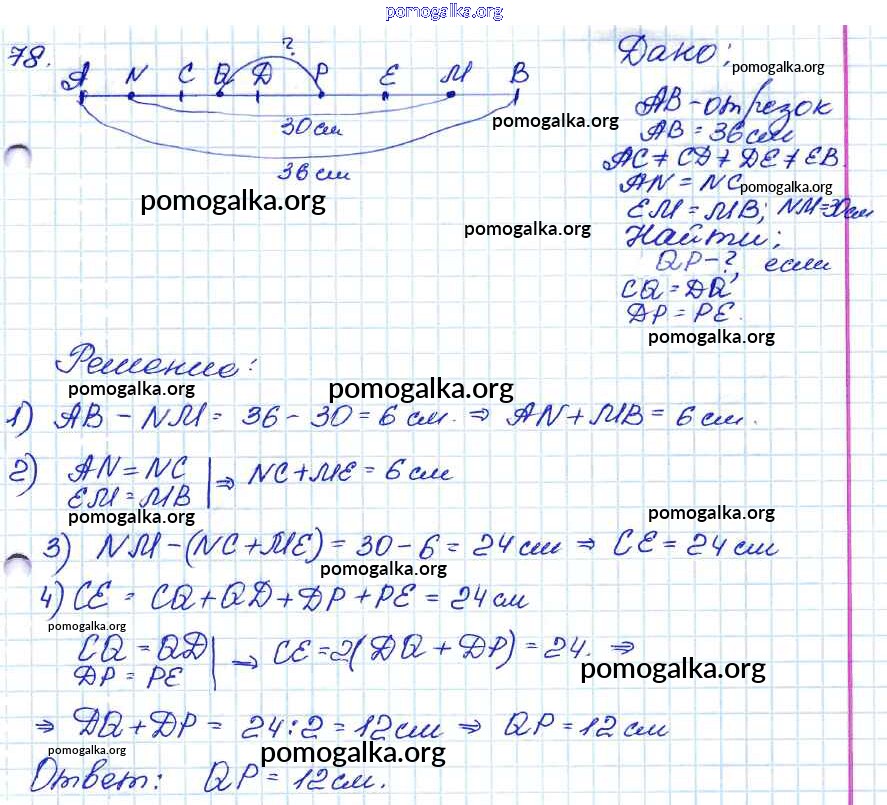 pomogalka.org
78.
?
A N C Q D P E M B
30 см
36 см
pomogalka.org
pomogalka.org
pomogalka.org
Дано:
pomogalka.org
AB - отрезок
AB = 36 см
AC ≠ CD ≠ DE ≠ EB.
AN = NC
pomogalka.org
EM = MB; NM = 30 см
Найти:
QP - ?, если
CQ = DQ
DP = PE.
pomogalka.org
Решение:
pomogalka.org
pomogalka.org
1) AB - NM = 36 - 30 = 6 см. ⇒ AN + MB = 6 см.
2) AN = NC
EM = MB | ⇒ NC + ME = 6 см
pomogalka.org
pomogalka.org
3) NM - (NC + ME) = 30 - 6 = 24 см ⇒ CE = 24 см
pomogalka.org
4) CE = CQ + QD + DP + PE = 24 см
pomogalka.org
CQ = QD
DP = PE | → CE = 2(DQ + DP) = 24. ⇒
pomogalka.org
⇒ DQ + DP = 24 : 2 = 12 см ⇒ QP = 12 см
pomogalka.org
pomogalka.org
Ответ: QP = 12 см.